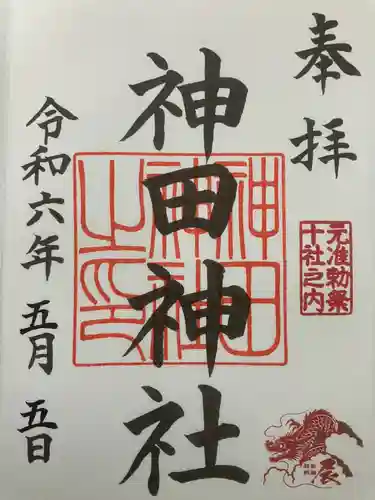 奉拝
元准勅祭
十社之内
神田神社
神田神社之印
辰
令和六年五月五日